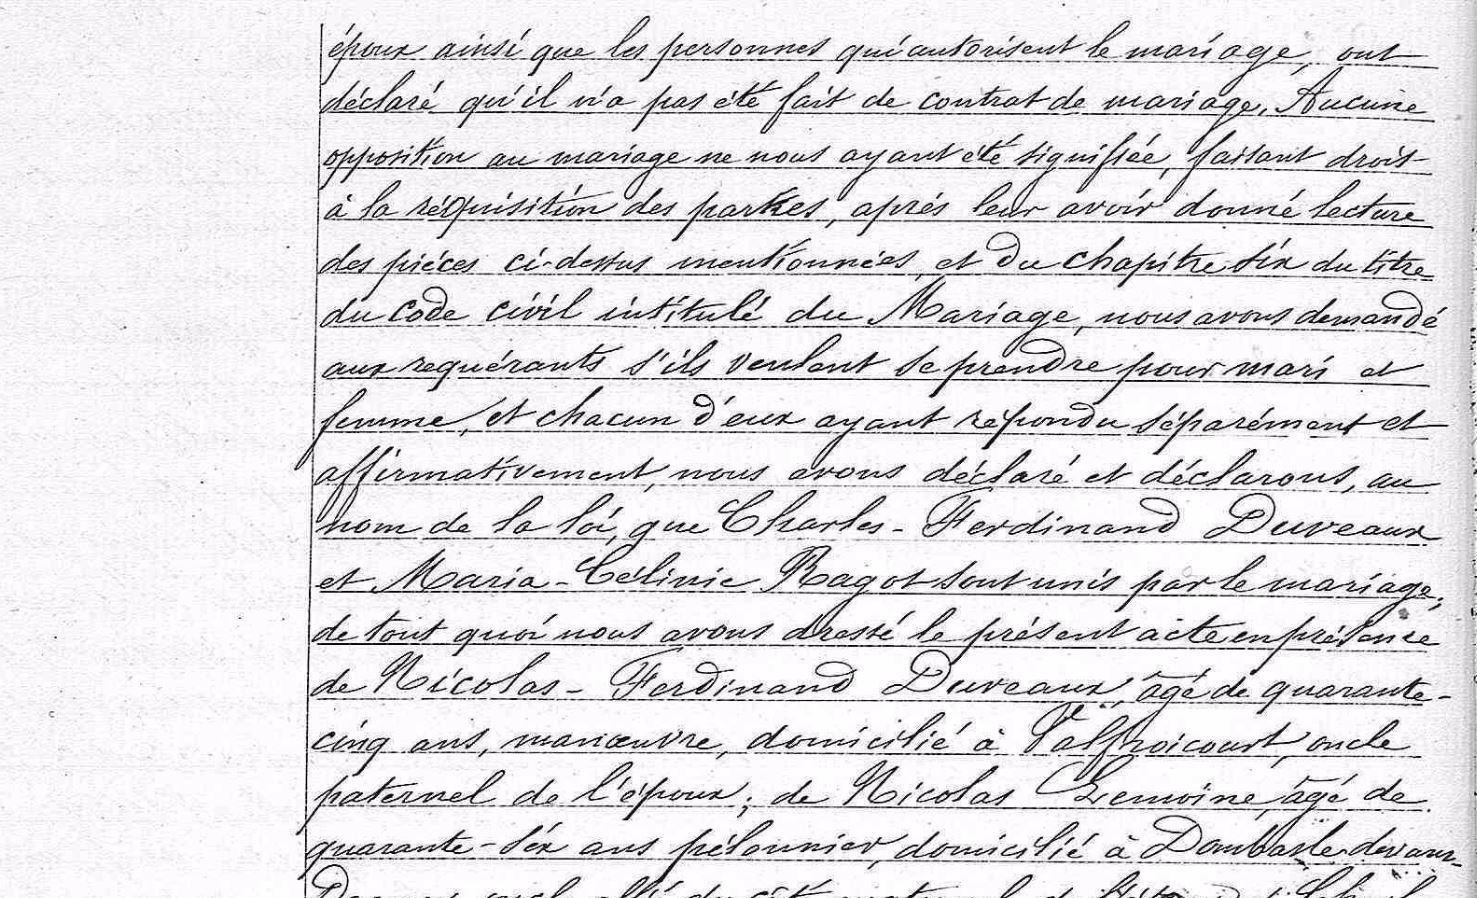 époux ainsi que les personnes qui autorisent le mariage, ont
déclaré qu'il n'a pas été fait de contrat de mariage. Aucune
opposition au mariage ne nous ayant été signifiée, faisant droit
à la réquisition des parties, après leur avoir donné lecture
des pièces ci-dessus mentionnées, et du chapitre six du titre
du code civil intitulé du Mariage, nous avons demandé
aux requérants s'ils veulent se prendre pour mari et
femme, et chacun d'eux ayant répondu séparément et
affirmativement, nous avons déclaré et déclarons, au
nom de la loi, que Charles-Ferdinand Duveaux
et Maria-Célinie Ragot sont unis par le mariage;
de tout quoi nous avons dressé le présent acte en présence
de Nicolas-Ferdinand Duveaux, âgé de quarante-
cinq ans, manœuvre, domicilié à Valfroicourt, oncle
paternel de l'époux; de Nicolas Lemoine, âgé de
quarante-six ans, domicilié à Dombasle devant